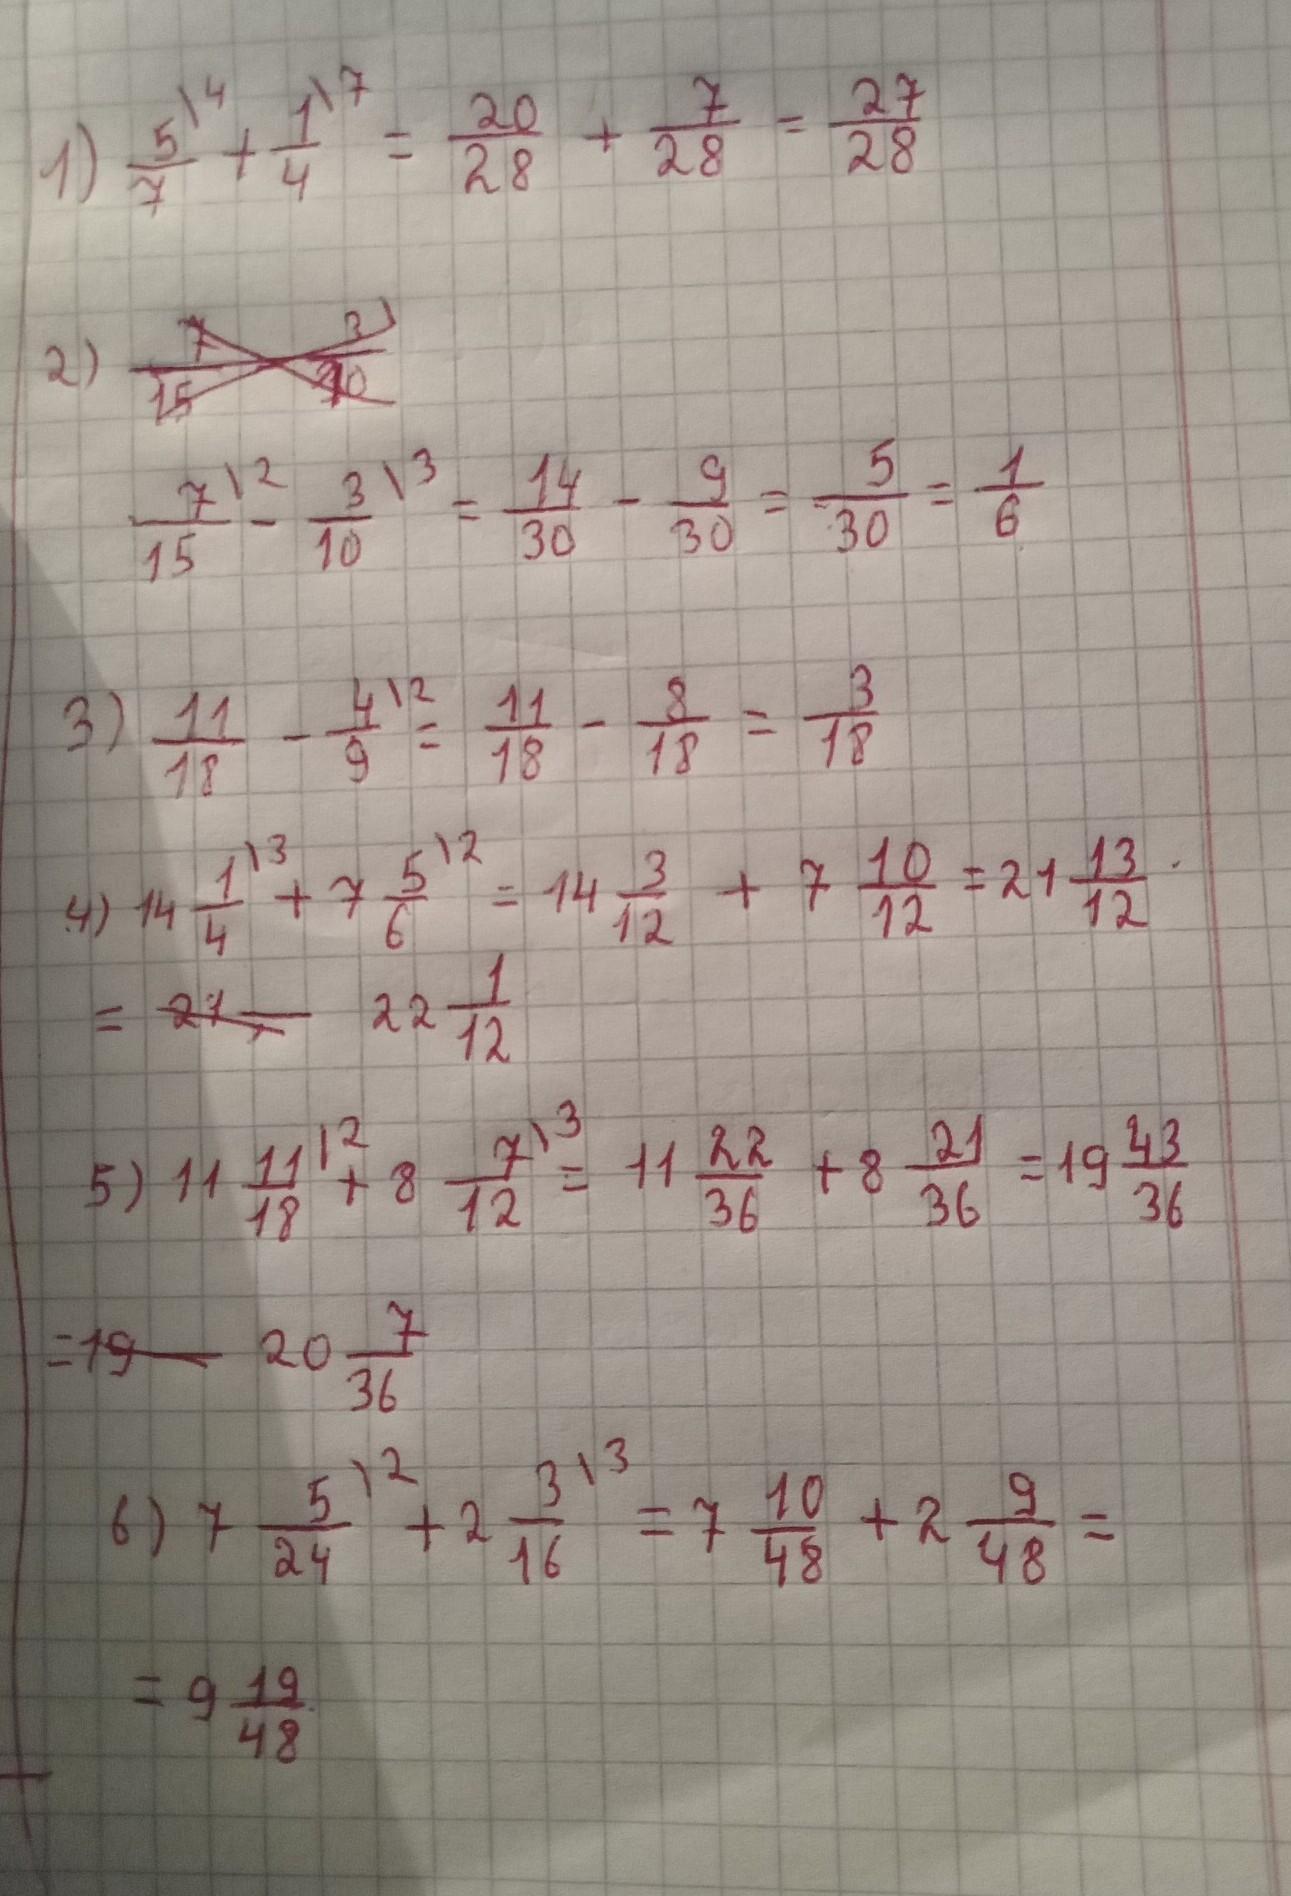 1) 5/7 \4 + 1/4 \7 = 20/28 + 7/28 = 27/28
2)
7/15 \2 - 3/10 \3 = 14/30 - 9/30 = 5/30 = 1/6
3) 11/18 - 4/9 \2 = 11/18 - 8/18 = 3/18
4) 14 1/4 \3 + 7 5/6 \2 = 14 3/12 + 7 10/12 = 21 13/12
= 22 1/12
5) 11 11/18 \2 + 8 7/12 \3 = 11 22/36 + 8 21/36 = 19 43/36
= 19 20 7/36
6) 7 5/24 \2 + 2 3/16 \3 = 7 10/48 + 2 9/48 =
= 9 19/48